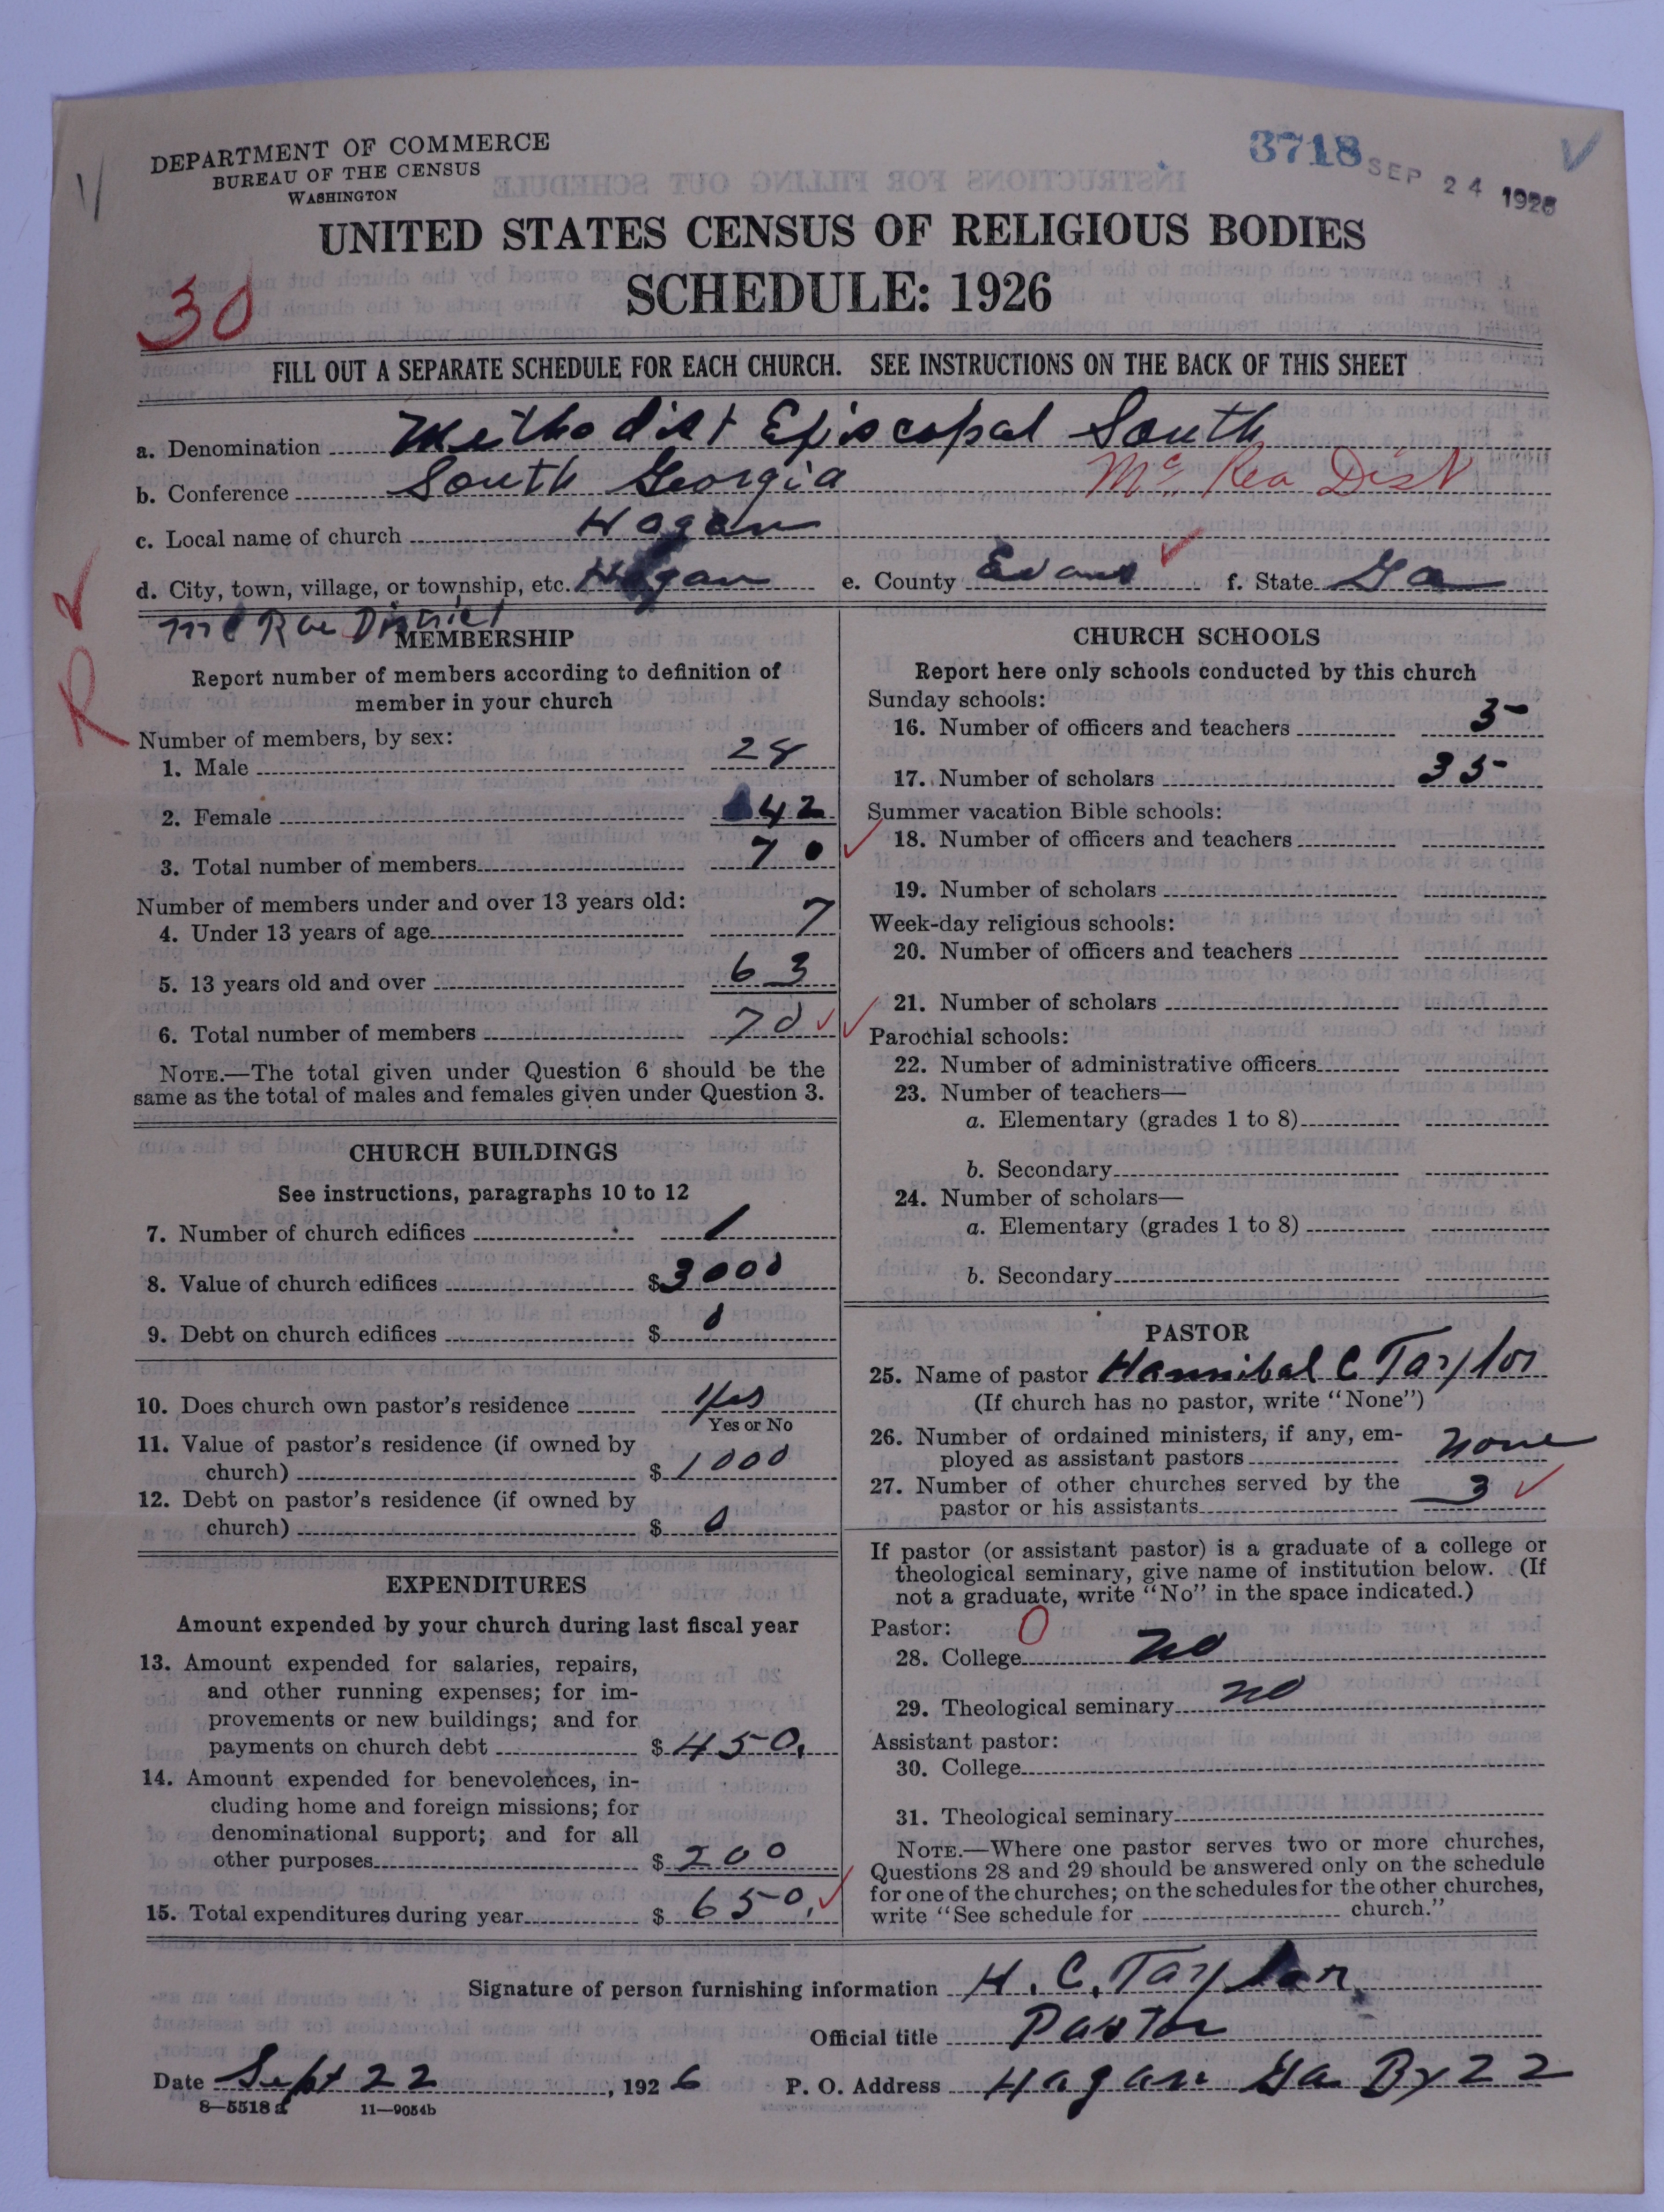 DEPARTMENT OF COMMERCE
BUREAU OF THE CENSUS
WASHINGTON
3718
SEP 24 1926
UNITED STATES CENSUS OF RELIGIOUS BODIES
SCHEDULE: 1926
30
FILL OUT A SEPARATE SCHEDULE FOR EACH CHURCH. SEE INSTRUCTIONS ON THE BACK OF THIS SHEET
a. Denomination Methodist Episcopal South
b. Conference South Georgia Mc Rea Dist
c. Local name of church Hagan
d. City, town, village, or township, etc. Hagan e. County Evans f. State Ga
Mc Rae District
MEMBERSHIP
Report number of members according to definition of
member in your church
Number of members, by sex:
1. Male 28
2. Female 42
3. Total number of members 70
Number of members under and over 13 years old:
4. Under 13 years of age 7
5. 13 years old and over 63
6. Total number of members 70
NOTE.—The total given under Question 6 should be the
same as the total of males and females given under Question 3.
CHURCH BUILDINGS
See instructions, paragraphs 10 to 12
7. Number of church edifices 1
8. Value of church edifices $3000
9. Debt on church edifices $ 0
10. Does church own pastor's residence Yes
Yes or No
11. Value of pastor's residence (if owned by
church) $ 1000
12. Debt on pastor's residence (if owned by
church) $ 0
EXPENDITURES
Amount expended by your church during last fiscal year
13. Amount expended for salaries, repairs,
and other running expenses; for im-
provements or new buildings; and for
payments on church debt $ 450.
14. Amount expended for benevolences, in-
cluding home and foreign missions; for
denominational support; and for all
other purposes $ 200
15. Total expenditures during year $ 650.
CHURCH SCHOOLS
Report here only schools conducted by this church
Sunday schools:
16. Number of officers and teachers 5
17. Number of scholars 35
Summer vacation Bible schools:
18. Number of officers and teachers
19. Number of scholars
Week-day religious schools:
20. Number of officers and teachers
21. Number of scholars
Parochial schools:
22. Number of administrative officers
23. Number of teachers—
a. Elementary (grades 1 to 8)
b. Secondary
24. Number of scholars—
a. Elementary (grades 1 to 8)
b. Secondary
PASTOR
25. Name of pastor Hannibal C Taylor
(If church has no pastor, write "None")
26. Number of ordained ministers, if any, em-
ployed as assistant pastors none
27. Number of other churches served by the
pastor or his assistants 3
If pastor (or assistant pastor) is a graduate of a college or
theological seminary, give name of institution below. (If
not a graduate, write "No" in the space indicated.)
Pastor: 0
28. College no
29. Theological seminary no
Assistant pastor:
30. College
31. Theological seminary
NOTE.—Where one pastor serves two or more churches,
Questions 28 and 29 should be answered only on the schedule
for one of the churches; on the schedules for the other churches,
write "See schedule for church."
Signature of person furnishing information H. C. Taylor
Official title Pastor
Date Sept 22, 1926 P. O. Address Hagan Ga Bx 22
8—5518 a 11—9054b